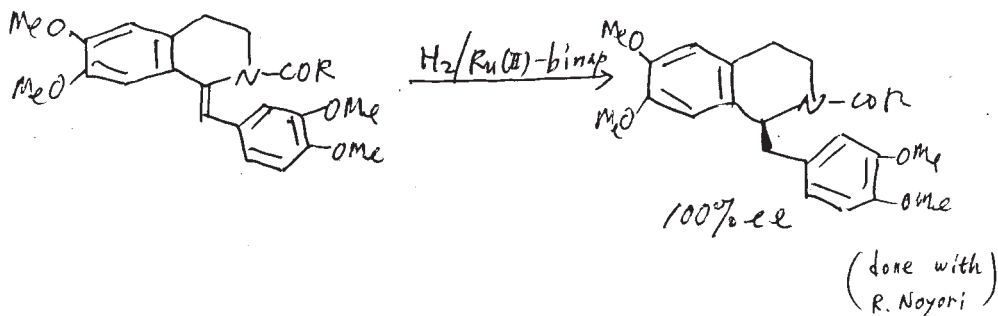 MeO
MeO
N-COR
OMe
OMe
H2/Ru(II)-binap
MeO
MeO
N-COR
OMe
OMe
100% ee
(done with
R. Noyori)